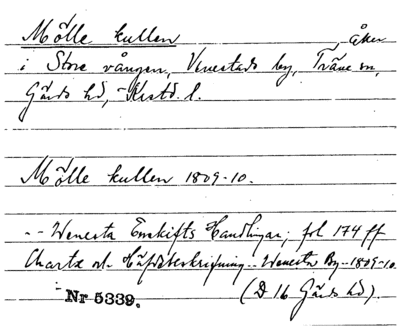 Mölle kullen åker
i Store vången, Venestads by, Träne sn,
Gärds hd, Krstd. l.
Mölle kullen 1809-10.
-- Wenesta Enskifts Handlingar; fol 174 ff
Charta och Häfdebeskrifning.. Wenesta By - 1809-10.
Nr 5339. (D 16 Gärds hd).